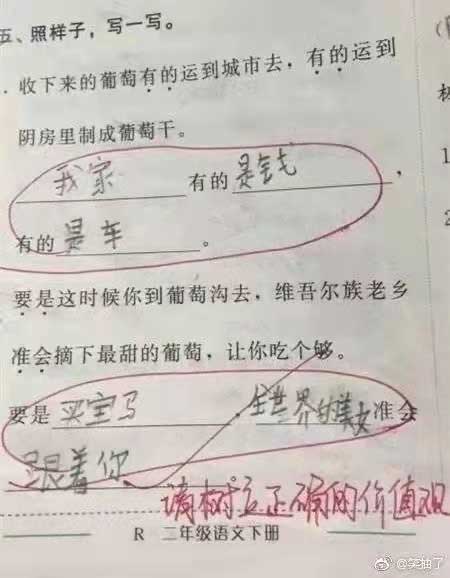 五、照样子，写一写。
. 收下来的葡萄有的运到城市去，有的运到
阴房里制成葡萄干。
我家 有的 是钱，
有的 是车。
要是这时候你到葡萄沟去，维吾尔族老乡
准会摘下最甜的葡萄，让你吃个够。
要是 买宝马，全世界的美女 准会
跟着你
请树立正确的价值观
R 二年级语文下册
@笑抽了